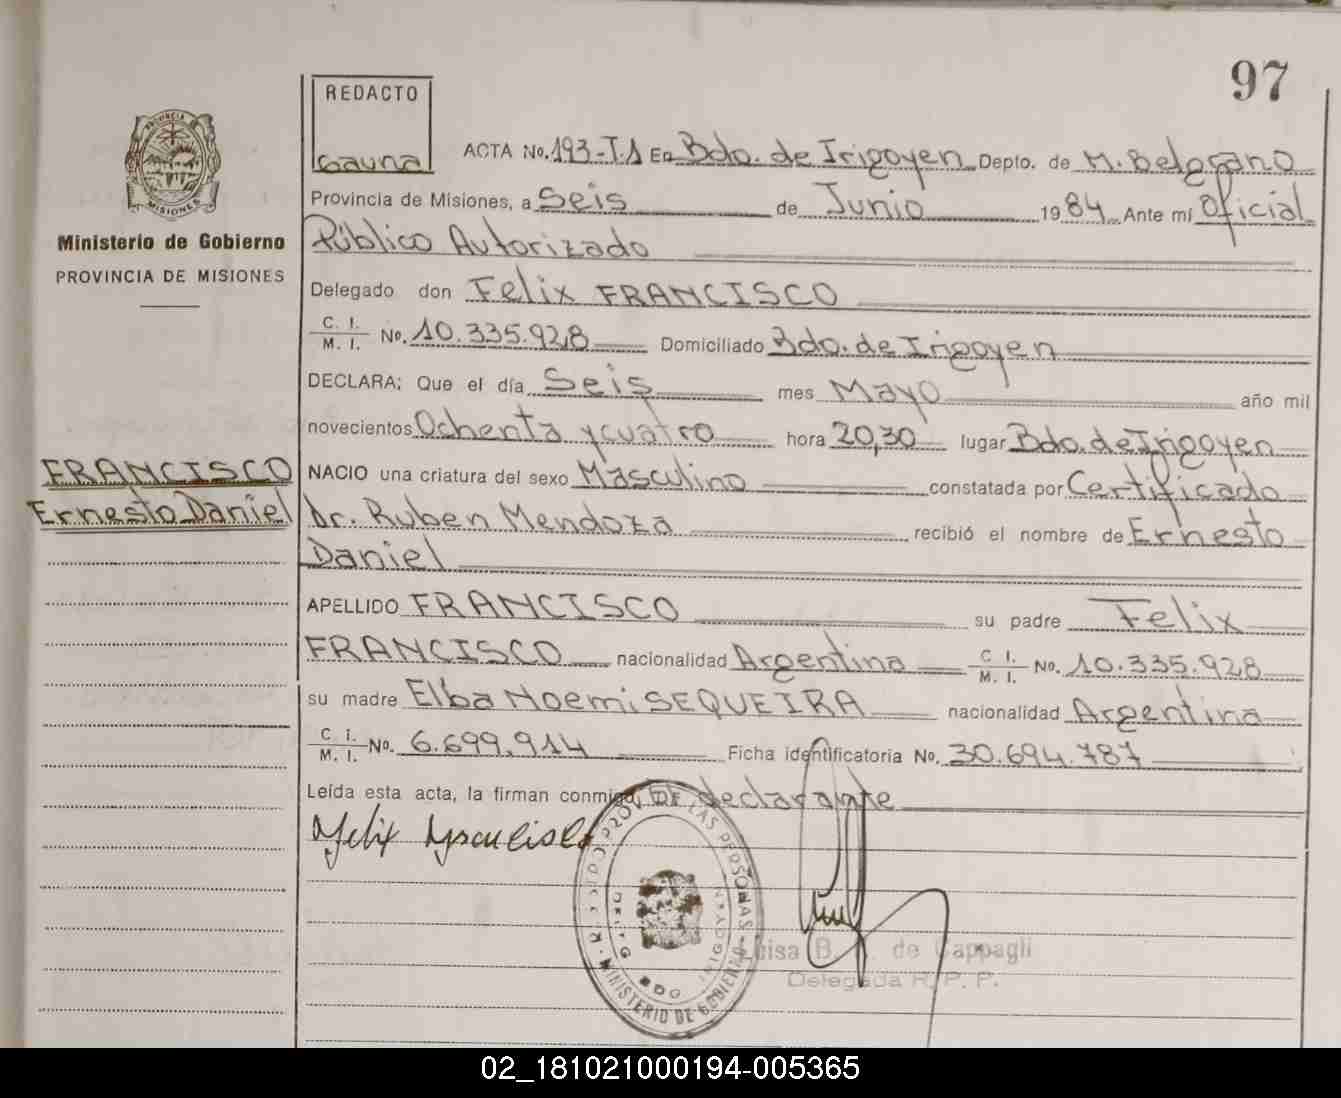 97
REDACTO
Gauna
PROVINCIA
MISIONES
Ministerio de Gobierno
PROVINCIA DE MISIONES
ACTA No. 193-T.1 En Bdo. de Irigoyen Depto. de M. Belgrano
Provincia de Misiones, a Seis de Junio 1984 Ante mí Oficial
Público Autorizado
Delegado don Felix FRANCISCO
C. I. / M. I. No. 10.335.928 Domiciliado Bdo. de Irigoyen
DECLARA: Que el día Seis mes Mayo año mil
novecientos Ochenta y cuatro hora 20,30 lugar Bdo. de Irigoyen
FRANCISCO
Ernesto Daniel
NACIO una criatura del sexo Masculino constatada por Certificado
Dr. Ruben Mendoza recibió el nombre de Ernesto
Daniel
APELLIDO FRANCISCO su padre Felix
FRANCISCO nacionalidad Argentina C. I. / M. I. No. 10.335.928
su madre Elba Noemi SEQUEIRA nacionalidad Argentina
C. I. / M. I. No. 6.699.914 Ficha identificatoria No. 30.694.787
Leída esta acta, la firman conmigo, declarante
Felix Francisco
DE LAS PERSONAS
MINISTERIO DE GOBIERNO
BDO IRIGOYEN
Luisa B. de Cappagli
Delegada R. P. P.
02_181021000194-005365